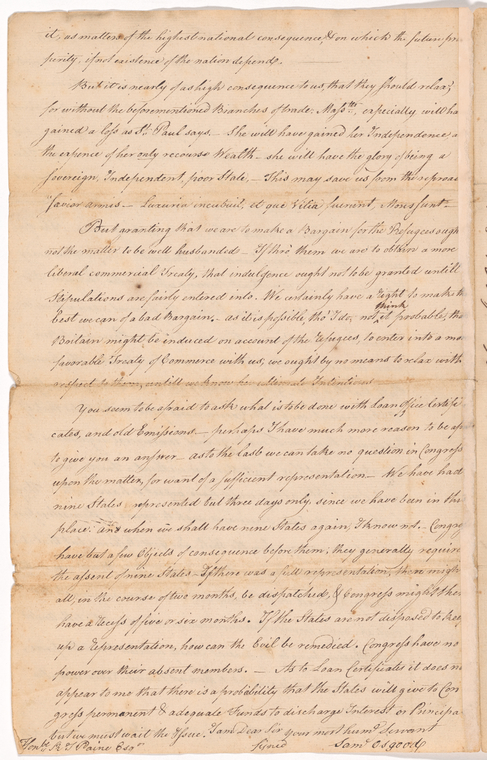 it, as matters of the highest national consequence, & on which the future pro
perity, if not existence of the nation depends.
But it is nearly of as high consequence to us, that they should relax;
for without the beforementioned Branches of trade, Massts, especially will ha
gained a loss as St. Paul says. – She will have gained her Independence a
the expence of her only recourse Wealth – she will have the glory of being a
sovereign, Independent, poor State. – This may save us from the reproac
savior armis – Luxuria incubuit, et que Vitia fuerunt, Mores sunt –
But granting that we are to make a Bargain for the Refugees ough
not the matter to be well husbanded – If thro' them we are to obtain a more
liberal commercial Treaty, that indulgence ought not to be granted untill
Stipulations are fairly entered into. – We certainly have a right to make th
best we can of a bad Bargain, – as it is possible, tho' I do not think it probable, tha
Britain might be induced on account of the Refugees, to enter into a mo
favorable Treaty of Commerce with us, we ought by no means to relax with
respect to them, untill we know her ultimate Intentions
You seem to be afraid to ask what is to be done with Loan Office Certifi
cates, and old Emissions – perhaps I have much more reason to be af
to give you an answer – as to the last we can take no question in Congress
upon the matter, for want of a sufficient representation – We have had
nine States represented but three days only, since we have been in this
place: and when we shall have nine States again, I know not. – Congre
have but a few Objects of consequence before them; they generally require
the assent of nine States – If there was a full representation, there migh
all, in the course of two months, be dispatched, & Congress might then
have a recess of five or six months. If the States are not disposed to keep
up a representation, how can the Evil be remedied. Congress have no
power over their absent members. – As to Loan Certificates it does no
appear to me that there is a probability that the States will give to Con
gress permanent & adequate Funds to discharge Interest or Principal
but we must wait the Issue. I am Dear Sir your most humle Servant
Honble R T Paine Esqr signed Saml Osgood